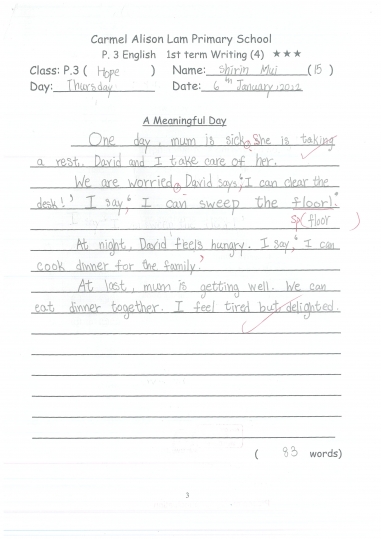 Carmel Alison Lam Primary School
P. 3 English 1st term Writing (4) ★★★
Class: P.3 ( Hope ) Name: Shirin Mui (15)
Day: Thursday Date: 6th January, 2012
A Meaningful Day
One day, mum is sick. She is taking
a rest. David and I take care of her.
We are worried. David says, "I can clear the
desk!" I say, "I can sweep the floor!"
sp( floor )
At night, David feels hungry. I say, "I can
cook dinner for the family."
At last, mum is getting well. We can
eat dinner together. I feel tired but delighted.
( 83 words)
3